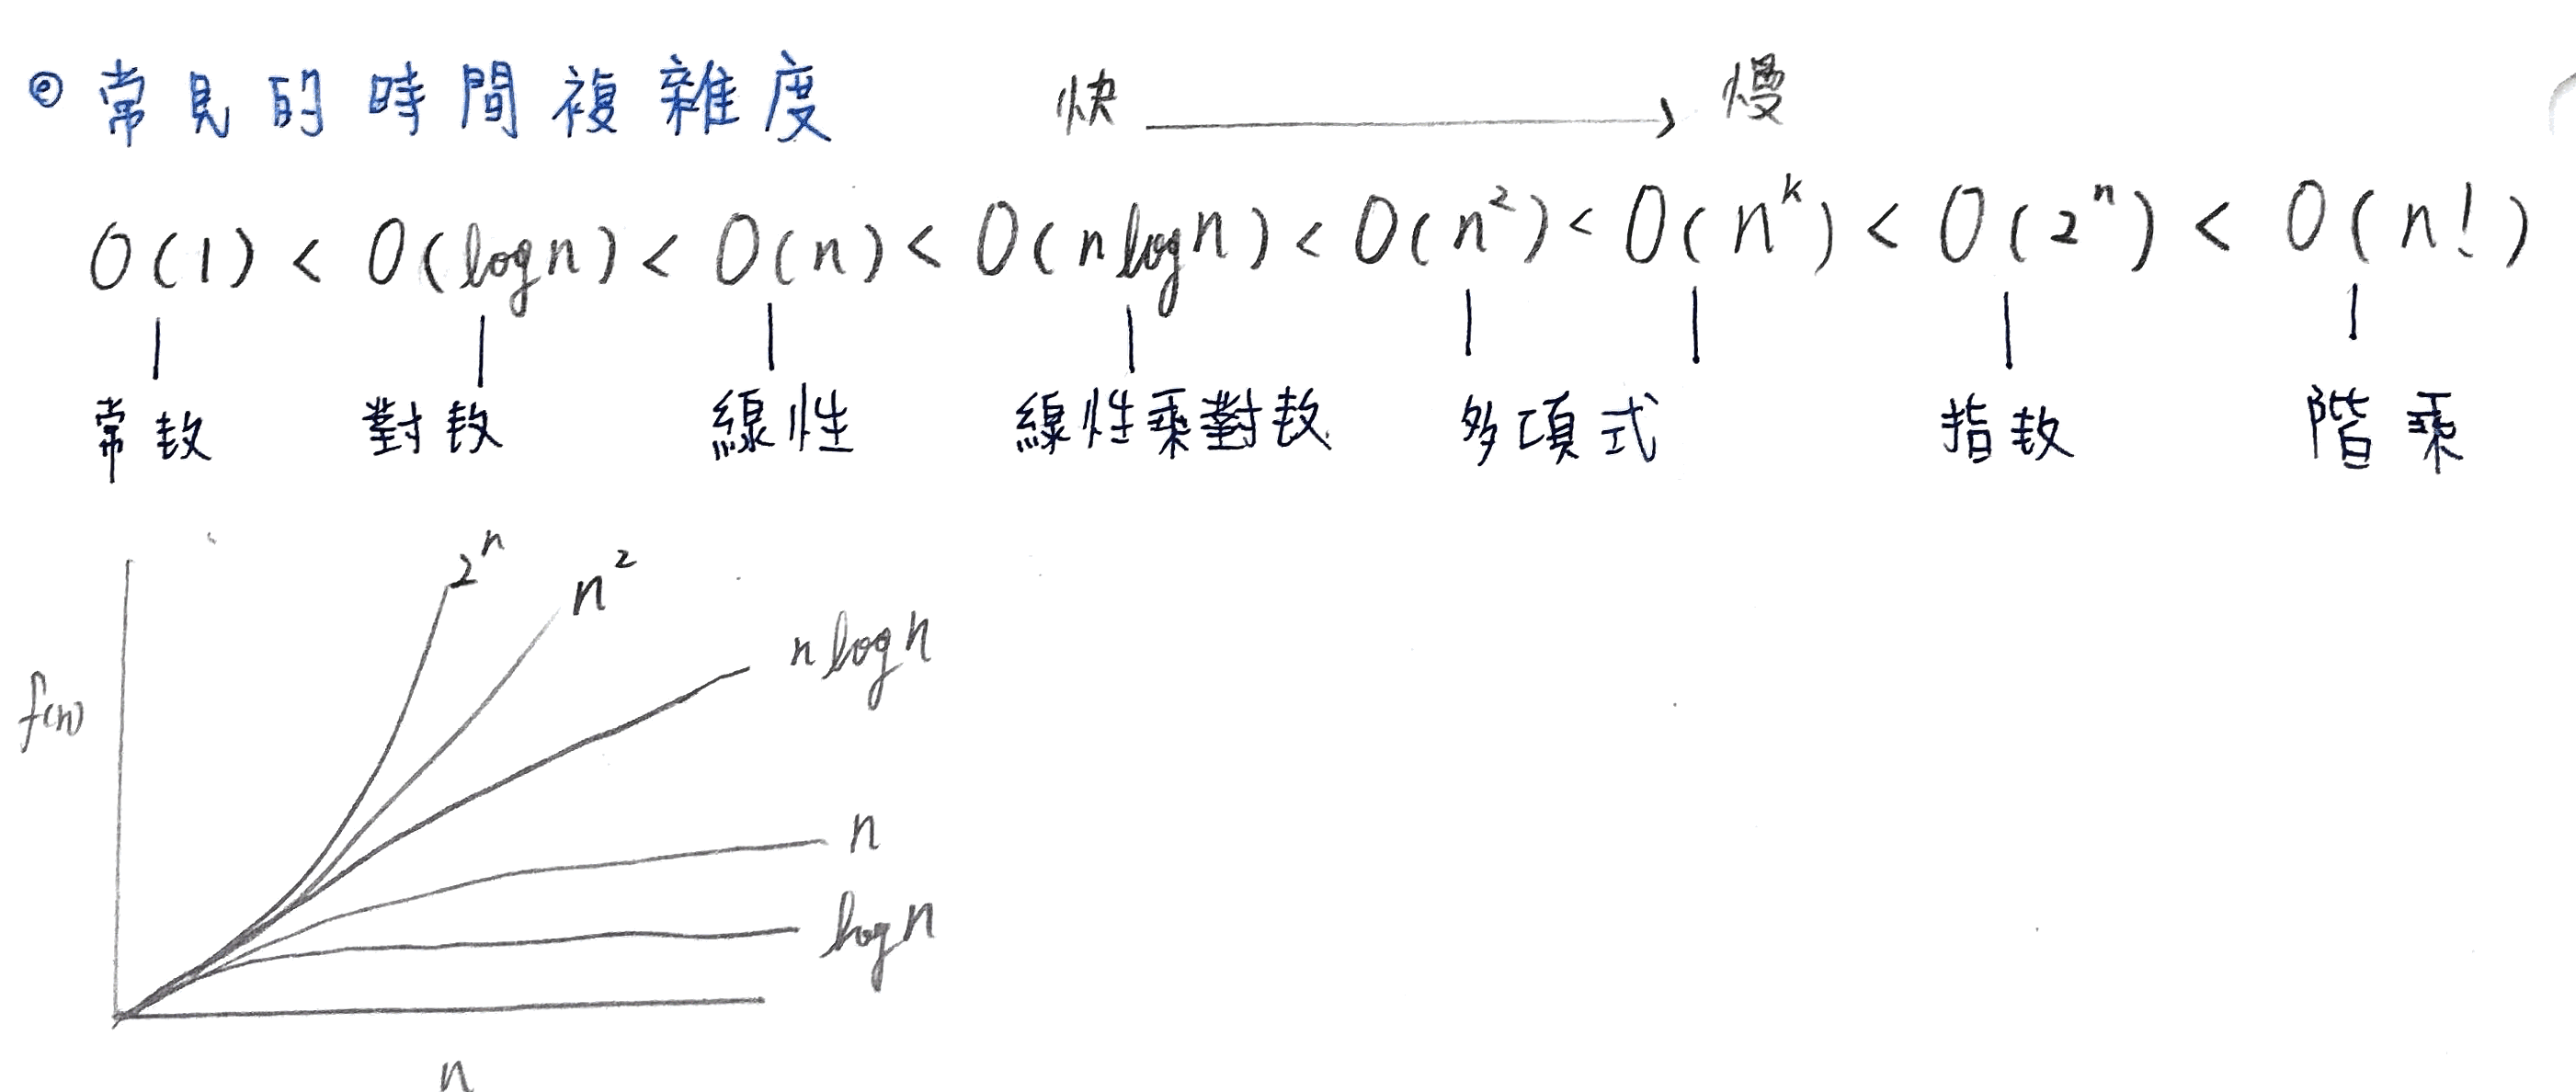 ◎ 常見的時間複雜度 快 → 慢
O(1) < O(log n) < O(n) < O(n log n) < O(n²) < O(nᵏ) < O(2ⁿ) < O(n!)
常数 對数 線性 線性乘對数 多項式 指数 階乘
2ⁿ
n²
n log n
f(n)
n
log n
n